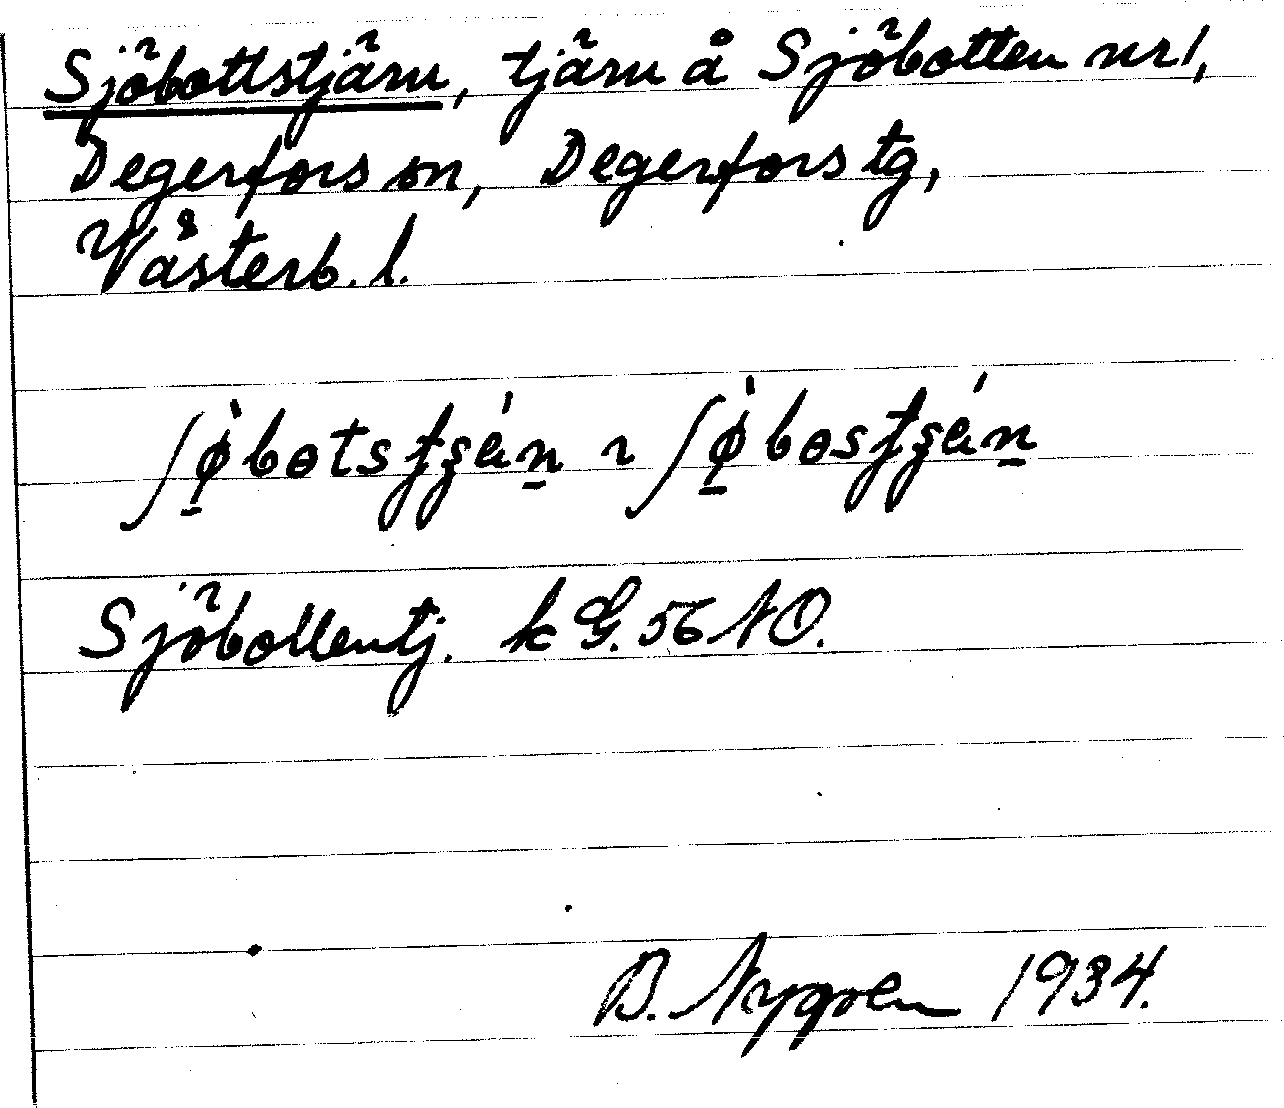 Sjöbottstjärn, tjärn å Sjöbotten nr 1,
Degerfors sn, Degerfors tg,
Västerb. l.
Sjöbottentj. k G. 56 NO.
B. Nygren 1934.